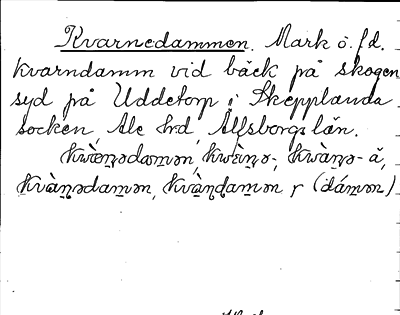 Kvarnedammen. Mark ö. f.d.
kvarndamm vid bäck på skogen
syd på Uddetorp i Skepplanda
socken, Ale hrd, Älfsborgs län.
kwàṉədamən, kwàṉə-, kwàṉə- å,
kvàṉədamən, kvàṉdamən ɼ (dámən)